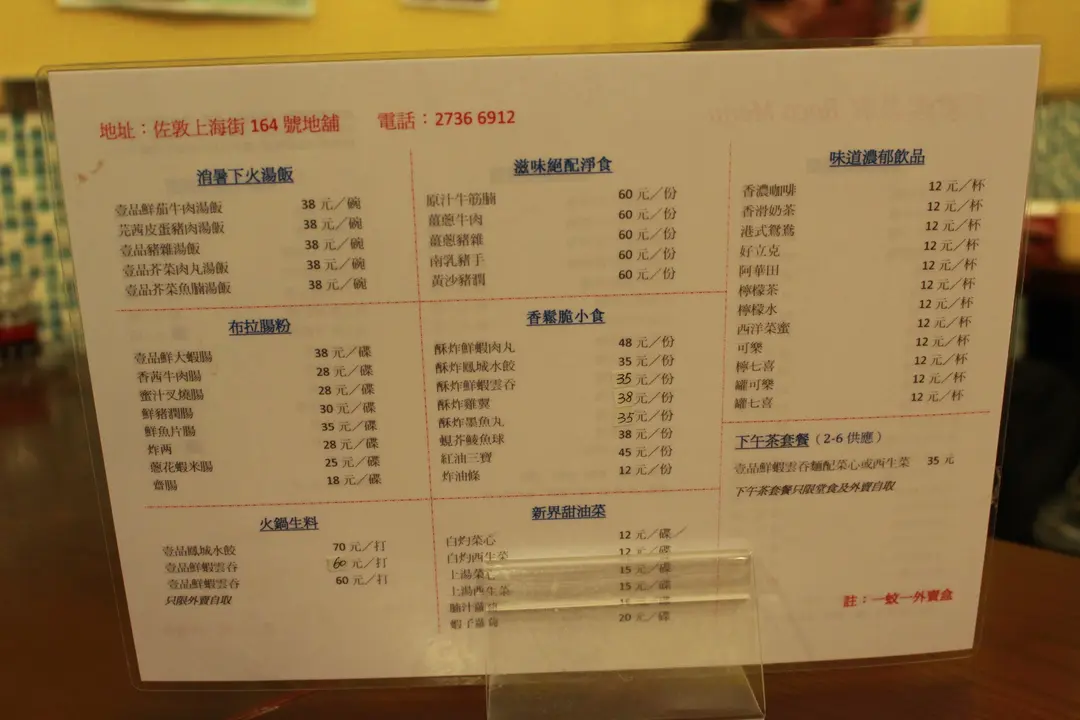 地址：佐敦上海街 164 號地舖 電話：2736 6912
消暑下火湯飯
壹品鮮茄牛肉湯飯 38 元／碗
芫茜皮蛋豬肉湯飯 38 元／碗
壹品豬雜湯飯 38 元／碗
壹品芥菜肉丸湯飯 38 元／碗
壹品芥菜魚腩湯飯 38 元／碗
布拉腸粉
壹品鮮大蝦腸 38 元／碟
香茜牛肉腸 28 元／碟
蜜汁叉燒腸 28 元／碟
鮮豬潤腸 30 元／碟
鮮魚片腸 35 元／碟
炸両 28 元／碟
蔥花蝦米腸 25 元／碟
齋腸 18 元／碟
火鍋生料
壹品鳳城水餃 70 元／打
壹品鮮蝦雲吞 60 元／打
壹品鮮蝦雲吞 60 元／打
只限外賣自取
滋味絕配淨食
原汁牛筋腩 60 元／份
薑蔥牛肉 60 元／份
薑蔥豬雜 60 元／份
南乳豬手 60 元／份
黃沙豬潤 60 元／份
香鬆脆小食
酥炸鮮蝦肉丸 48 元／份
酥炸鳳城水餃 35 元／份
酥炸鮮蝦雲吞 35 元／份
酥炸雞翼 38 元／份
酥炸墨魚丸 35 元／份
蜆芥鯪魚球 38 元／份
紅油三寶 45 元／份
炸油條 12 元／份
新界甜油菜
白灼菜心 12 元／碟
白灼西生菜 12 元／碟
上湯菜心 15 元／碟
上湯西生菜 15 元／碟
腩汁蘿 元／碟
蝦子蘿 20 元／碟
味道濃郁飲品
香濃咖啡 12 元／杯
香滑奶茶 12 元／杯
港式鴛鴦 12 元／杯
好立克 12 元／杯
阿華田 12 元／杯
檸檬茶 12 元／杯
檸檬水 12 元／杯
西洋菜蜜 12 元／杯
可樂 12 元／杯
檸七喜 12 元／杯
罐可樂 12 元／杯
罐七喜 12 元／杯
下午茶套餐（2-6 供應）
壹品鮮蝦雲吞麵配菜心或西生菜 35 元
下午茶套餐只限堂食及外賣自取
註：一蚊一外賣盒